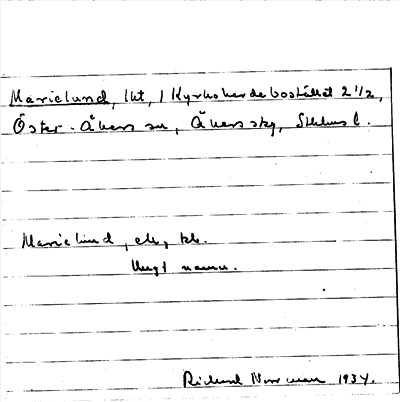 Marielund, lht, 1 Kyrkoherdebostället 2 1/2,
Öster-Åkers sn, Åkers skg, Sthlms l.
Marielund, ek, kb.
Ungt namn.
Rickard Norrman 1934.